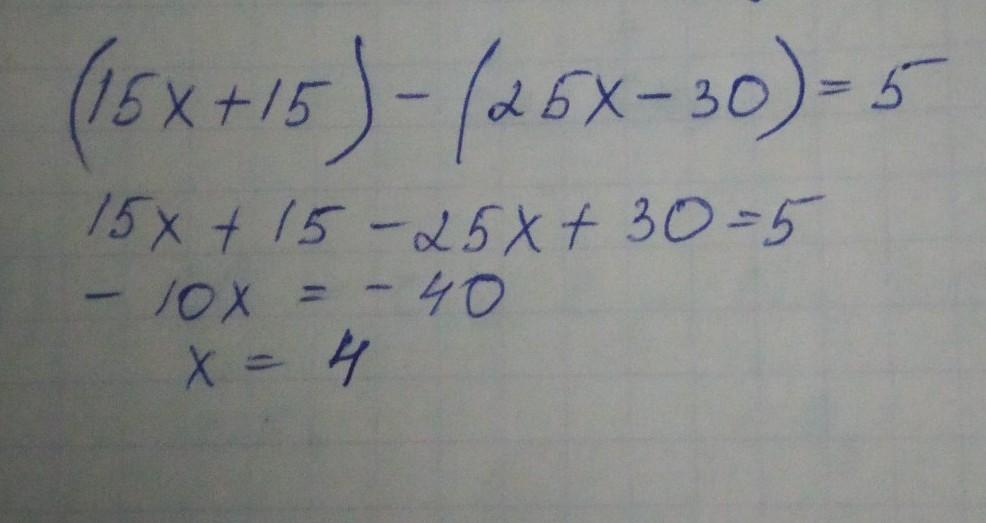 (15x+15)-(25x-30)=5
15x+15-25x+30=5
-10x=-40
x=4